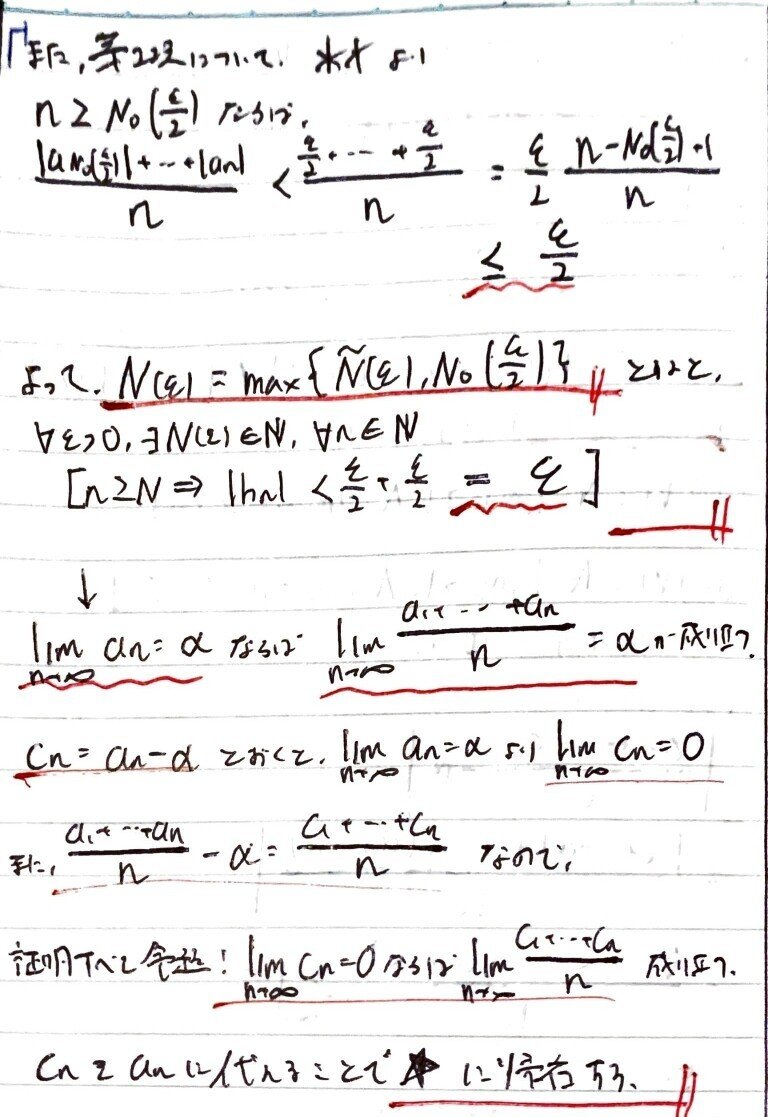 また, 第2項について. ** より
n ≧ N₀(ε/2) ならば,
(|a_{N₀(ε/2)}| + … + |an|)/n < (ε/2 + … + ε/2)/n = ε/2 (n - N₀(ε/2) + 1)/n
≦ ε/2
よって, N(ε) = max{Ñ(ε), N₀(ε/2)} とると,
∀ε>0, ∃N(ε)∈ℕ, ∀n∈ℕ
[n≧N ⇒ |bn| < ε/2 + ε/2 = ε]
↓
lim_{n→∞} an = α ならば lim_{n→∞} (a₁ + … + an)/n = α が成り立つ.
Cn = an - α とおくと, lim_{n→∞} an = α より lim_{n→∞} Cn = 0
また, (a₁ + … + an)/n - α = (C₁ + … + Cn)/n なので,
証明すべき命題! lim_{n→∞} Cn = 0 ならば lim_{n→∞} (C₁ + … + Cn)/n 成り立つ.
Cn を an に代えることで ★ に帰着する.